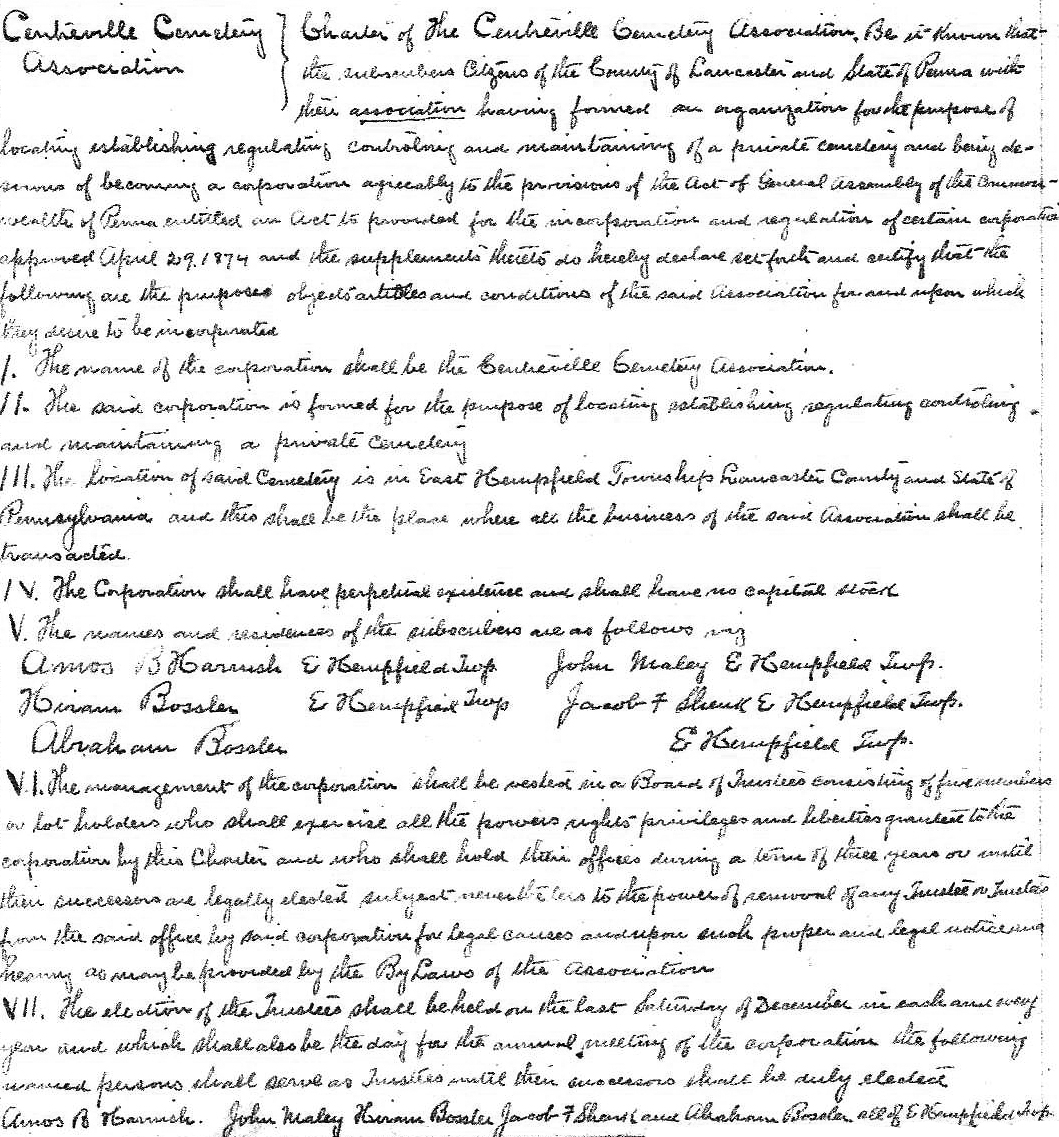 Centreville Cemetery } Charter of the Centreville Cemetery Association. Be it Known that
Association the subscribers Citizens of the County of Lancaster and State of Penna with
their association having formed an organization for the purpose of
locating establishing regulating controlling and maintaining of a private cemetery and being de-
sirous of becoming a corporation agreeably to the provisions of the Act of General Assembly of the Common-
wealth of Penna entitled an Act to provided for the incorporation and regulation of certain corporations
approved April 29, 1874 and the supplements thereto do hereby declare set forth and certify that the
following are the purposes objects articles and conditions of the said Association for and upon which
they desire to be incorporated
I. The name of the corporation shall be the Centreville Cemetery Association.
II. The said corporation is formed for the purpose of locating establishing regulating controlling
and maintaining a private cemetery
III. The location of said Cemetery is in East Hempfield Township Lancaster County and State of
Pennsylvania and this shall be the place where all the business of the said Association shall be
transacted.
IV. The Corporation shall have perpetual existence and shall have no capital stock
V. The names and residences of the subscribers are as follows viz
Amos B Harnish E Hempfield Twp John Maley E Hempfield Twp.
Hiram Bossler E Hempfield Twp Jacob F Shenk E Hempfield Twp.
Abraham Bossler E Hempfield Twp.
VI. The management of the corporation shall be vested in a Board of Trustees consisting of five members
or lot holders who shall exercise all the powers rights privileges and liberties granted to the
corporation by this Charter and who shall hold their offices during a term of three years or until
their successors are legally elected subject nevertheless to the power of removal of any Trustee or Trustees
from the said office by said corporation for legal causes and upon such proper and legal notice and
hearing as may be provided by the By Laws of the Association
VII. The election of the Trustees shall be held on the last Saturday of December in each and every
year and which shall also be the day for the annual meeting of the corporation the following
named persons shall serve as Trustees until their successors shall be duly elected
Amos B Harnish. John Maley Hiram Bossler Jacob F Shenk and Abraham Bossler all of E Hempfield Twp.